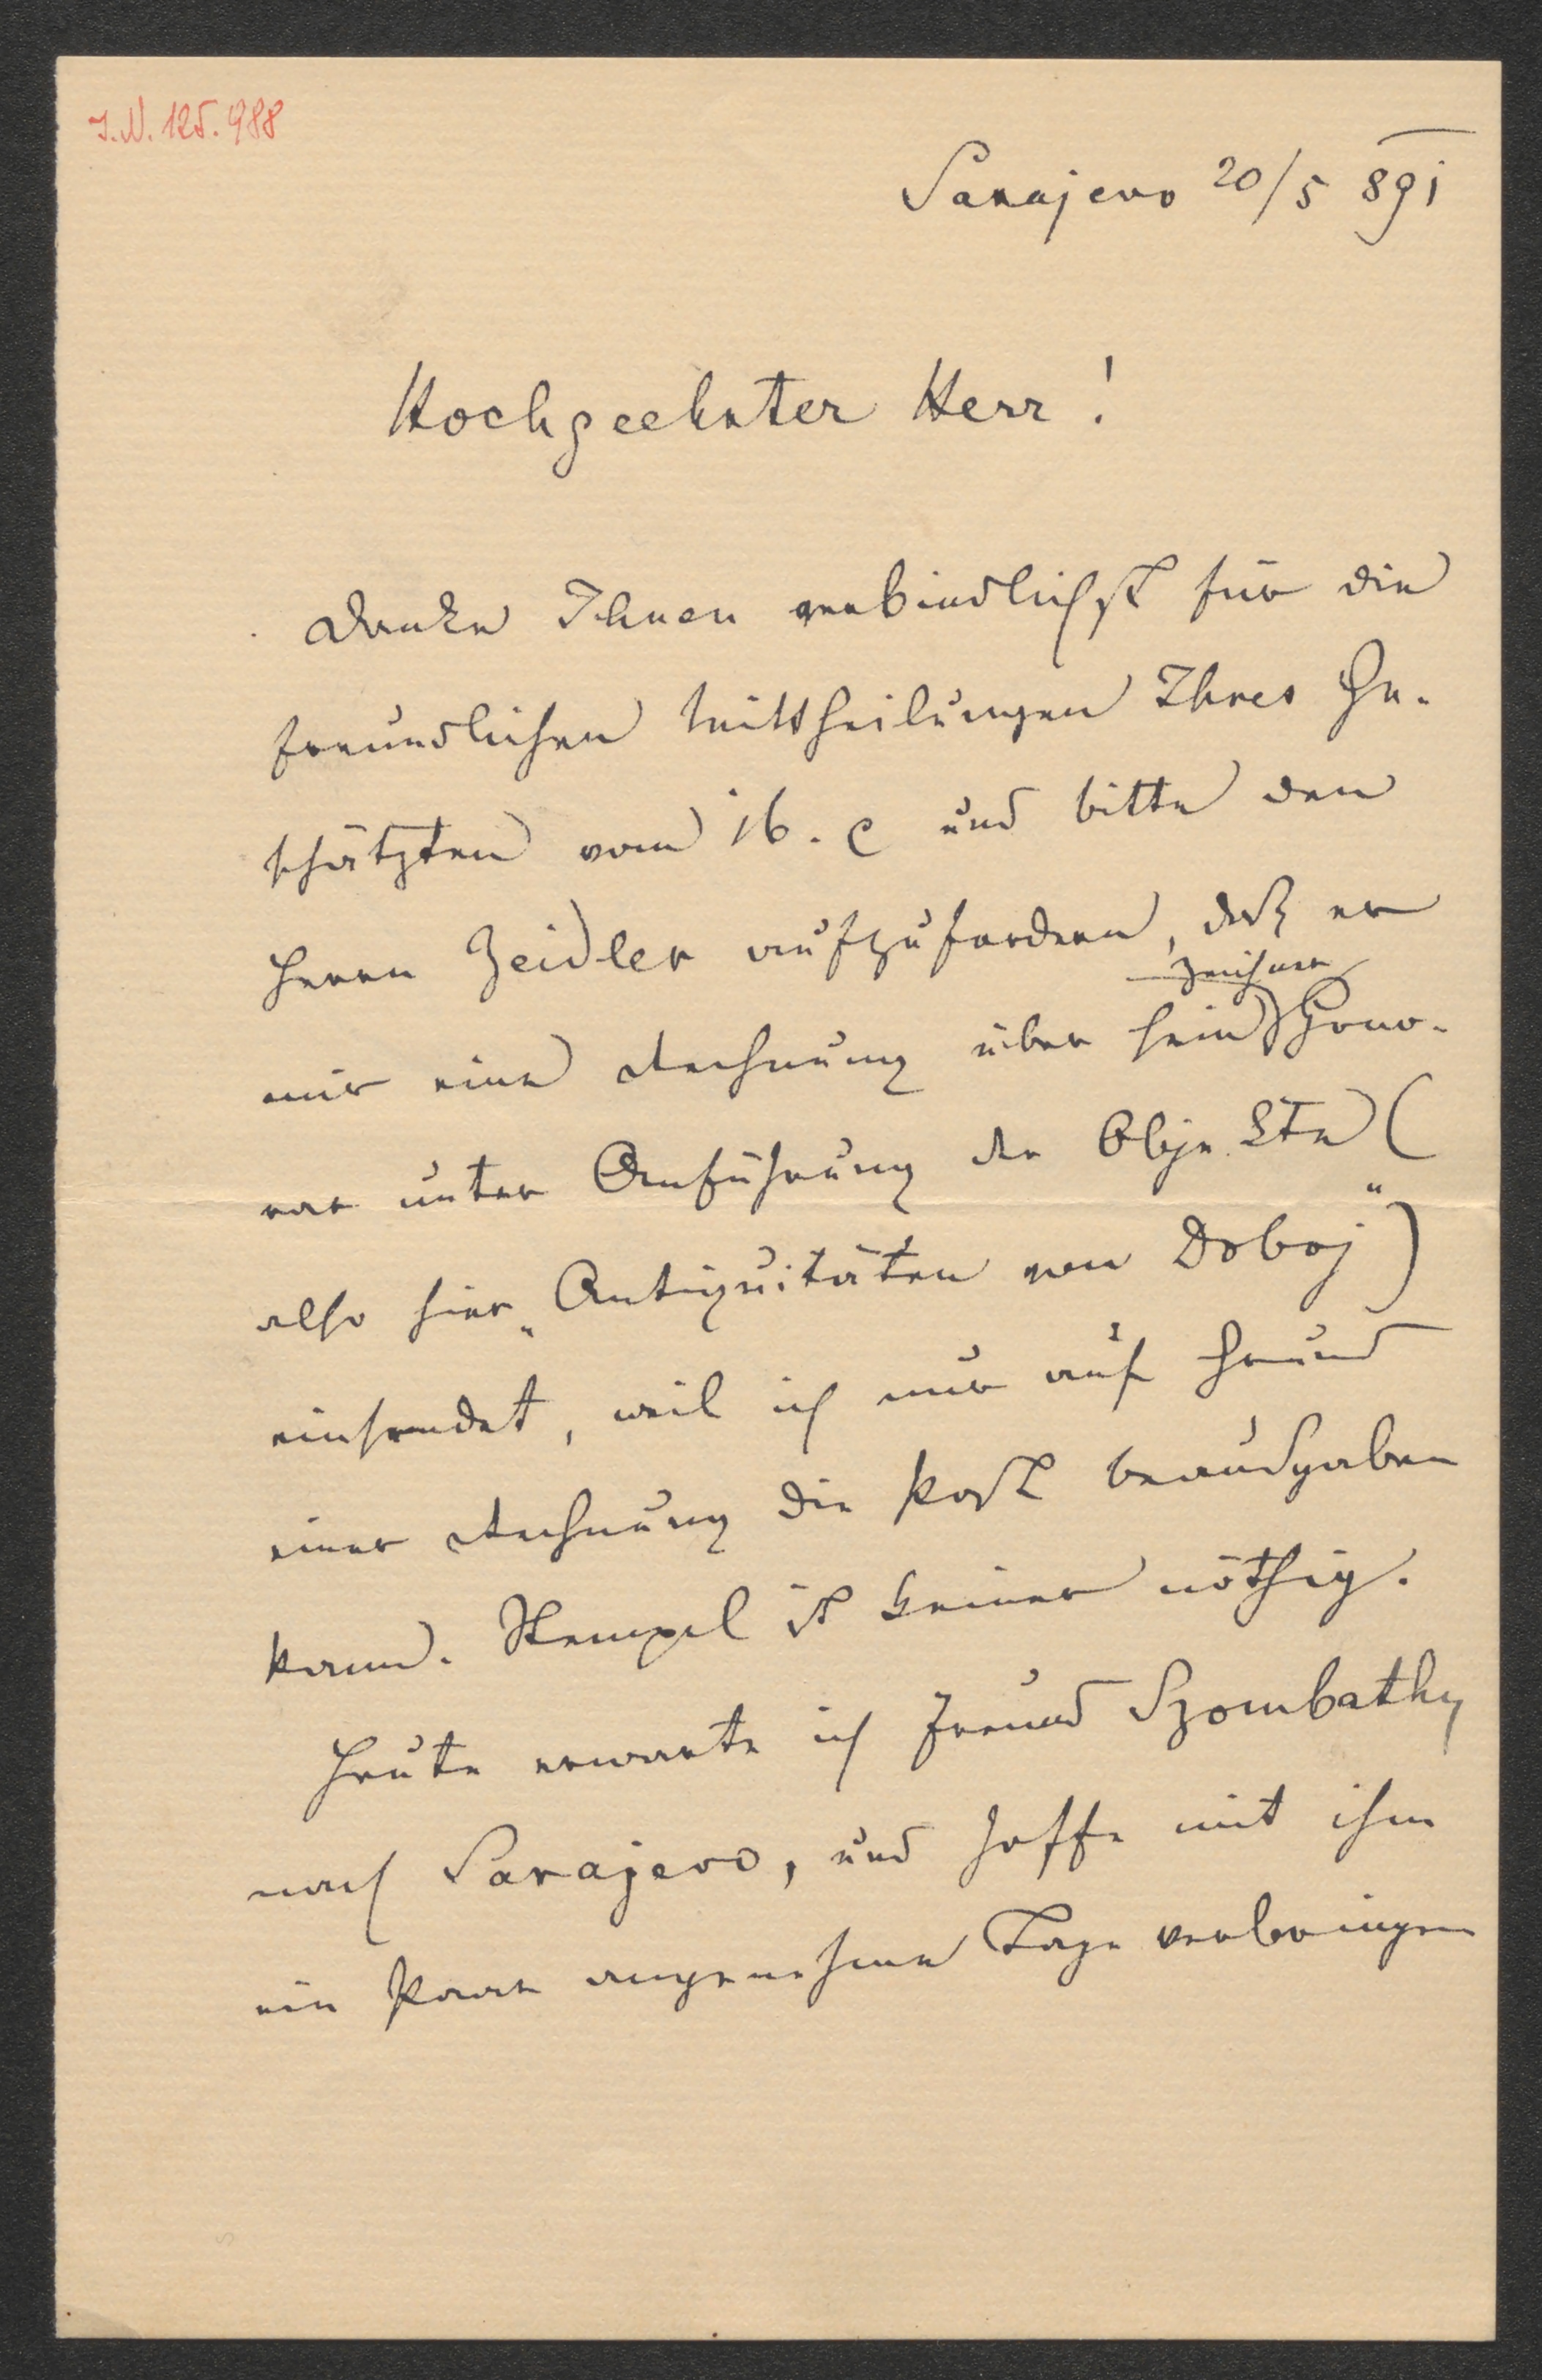 J.N. 125.988
Sarajevo 20/5 891
Hochgeehrter Herr!
Danke Ihnen verbindlichst für die
freundlichen Mittheilungen Ihres Ge-
schätzten vom 16. c und bitte den
Herrn Zeidler aufzufordern, daß er
Zeichner
mir eine Rechnung über sein Hono-
rar unter Anführung der Objekte (
also hier „Antiquitäten von Doboj")
einsendet, weil ich nur auf Grund
einer Rechnung die Post beausgaben
kann. Stempel ist keiner nöthig.
Heute erwarte ich Freund Szombathy
nach Sarajevo, und hoffe mit ihm
ein Paar angenehme Tage verbringen